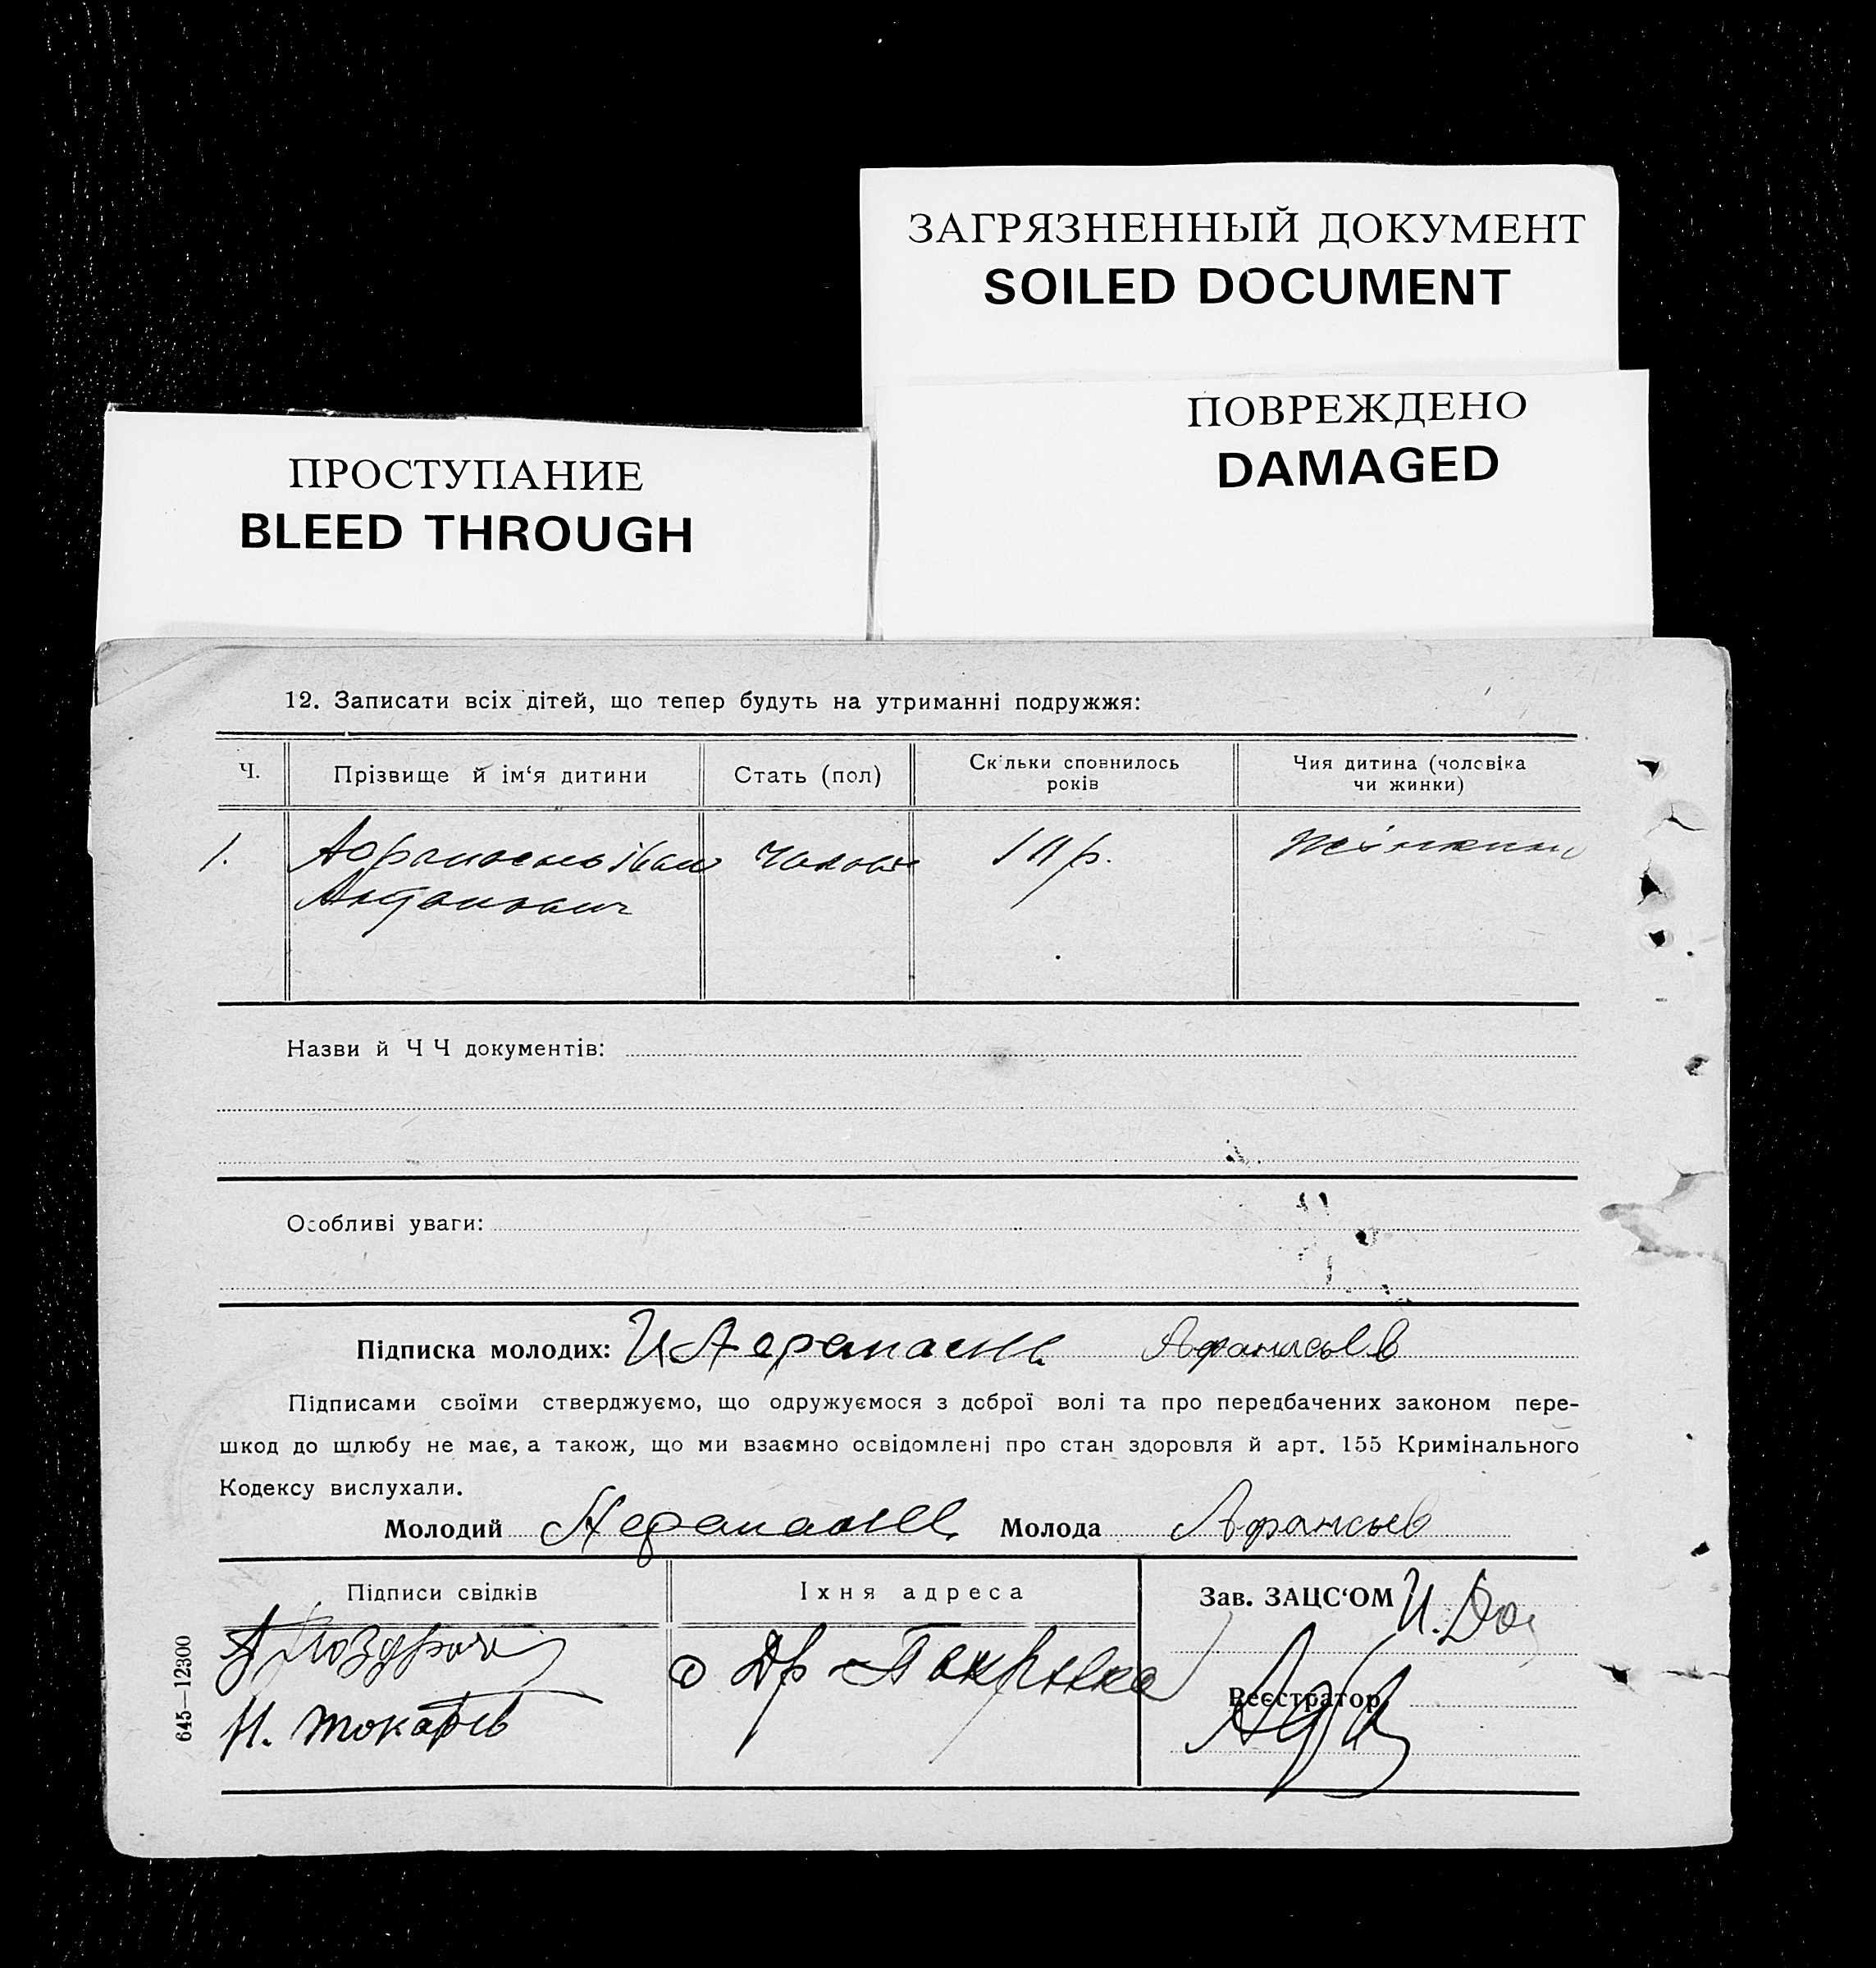 ЗАГРЯЗНЕННЫЙ ДОКУМЕНТ
SOILED DOCUMENT
ПОВРЕЖДЕНО
DAMAGED
ПРОСТУПАНИЕ
BLEED THROUGH
12. Записати всіх дітей, що тепер будуть на утриманні подружжя:
Ч. Прізвище й ім‘я дитини Стать (пол) Скільки сповнилось років Чия дитина (чоловіка чи жинки)
1. Іван
Антонович
Назви й Ч Ч документів:
Особливі уваги:
Підписка молодих: Афанасьев
Підписами своїми стверджуємо, що одружуємося з доброї волі та про передбачених законом пере-
шкод до шлюбу не має, а також, що ми взаємно освідомлені про стан здоровля й арт. 155 Кримінального
Кодексу вислухали.
Молодий Молода
Підписи свідків Іхня адреса Зав. ЗАЦС‘ОМ
Реєстратор
Н. Токарев
645—12300